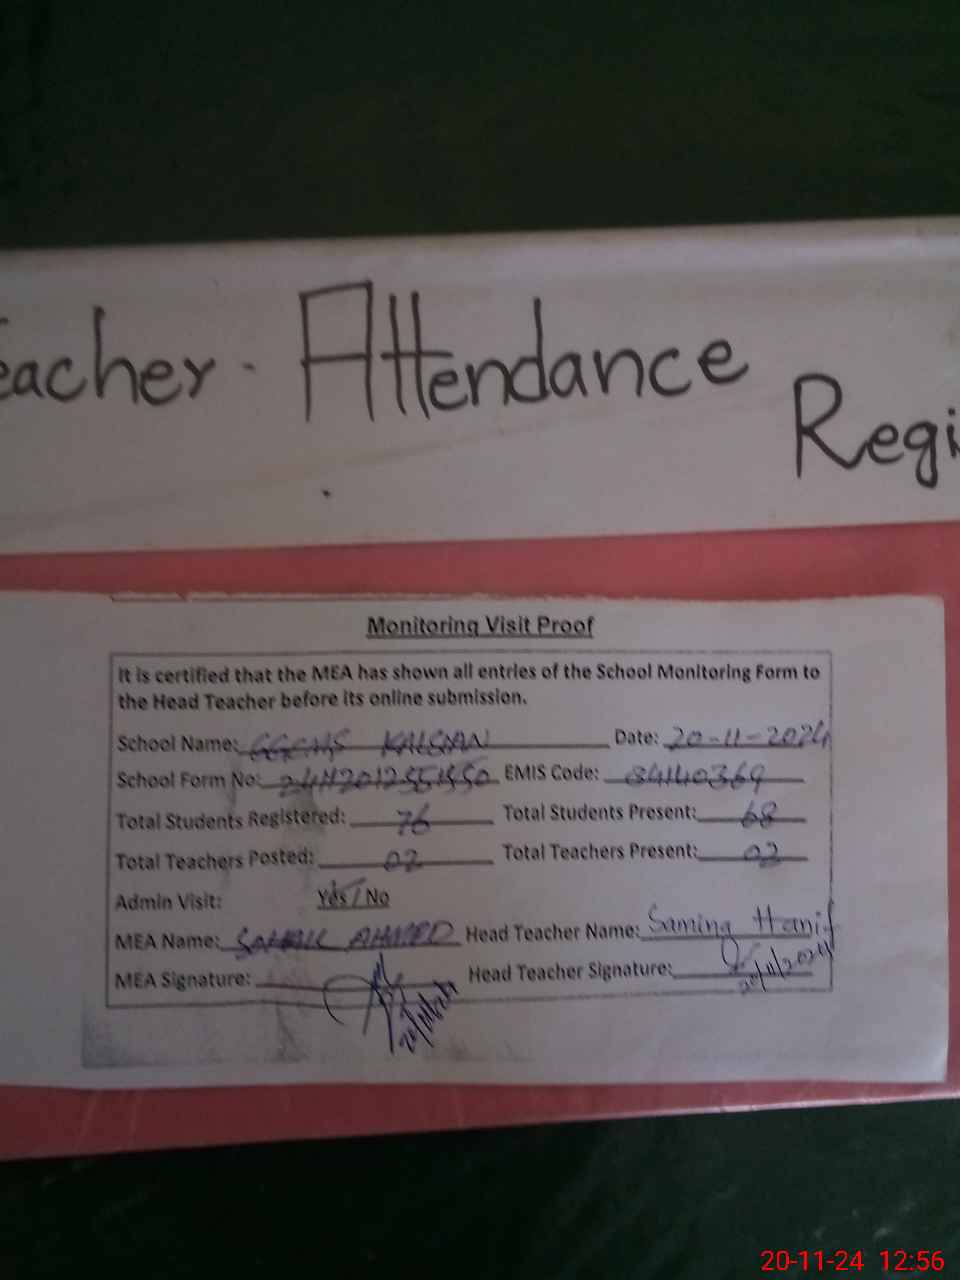 eacher - Attendance
Regi
Monitoring Visit Proof
It is certified that the MEA has shown all entries of the School Monitoring Form to
the Head Teacher before its online submission.
School Name: Date: 20-11-2024
School Form No: EMIS Code: 34140369
Total Students Registered: 76 Total Students Present: 68
Total Teachers Posted: 02 Total Teachers Present: 02
Admin Visit: Yes / No
MEA Name: AHMED Head Teacher Name: Samina Hanif
MEA Signature: Head Teacher Signature:
20/11/24 20/11/2024
20-11-24 12:56